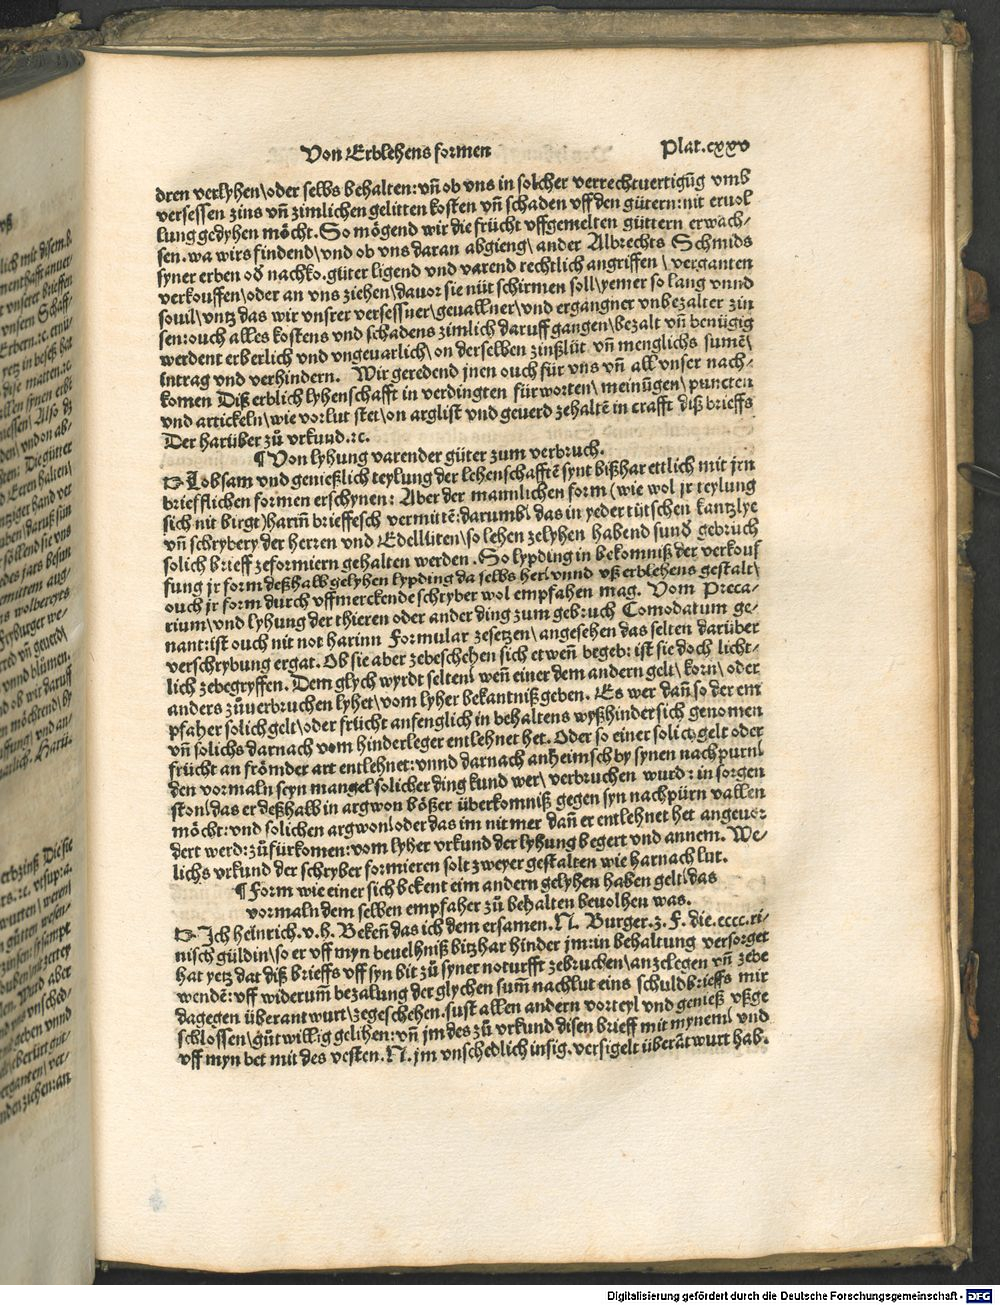 Von Erblehens formen Plat.cxxv
dren verlyhen\oder selbs behalten:vñ ob vns in solcher verrechtuertigũg vmb
versessen zins vñ zimlichen gelitten kosten vñ schaden vff den gütern:nit eruol
lung gedyhen möcht.So mögend wir die frücht vffgemelten güttern erwach-
sen.wa wirs findend\vnd ob vns daran abgieng\ander Albrechts Schmids
syner erben oð nachko.güter ligend vnd varend rechtlich angriffen\verganten
verkouffen\oder an vns ziehen\dauor sie nüt schirmen soll\yemer so lang vnnd
souil\vntz das wir vnsrer versessner\geuallner\vnd ergangner vnbezalter zin
sen:ouch alles kostens vnd schadens zimlich daruff gangen\bezalt vñ benügig
werdent erberlich vnd vngeuarlich\on derselben zinßlüt vñ menglichs sumẽ\
Intrag vnd verhindern. Wir geredend jnen ouch für vns vñ all vnser nach-
komen Diß erblich lyhenschafft in verdingten fürworten\meinũgen\puncten
vnd artickeln\wie vorlut stet\on arglist vnd geuerd zehaltẽ in crafft diß brieffs
Der harüber zů vrkund.ꝛc.
¶ Von lyhung varender güter zum verbruch.
Lobsam vnd genießlich teylung der lehenschafftẽ synt bißhar ettlich mit jrn
briefflichen formen erschynen: Aber der mannlichen form(wie wol jr teylung
sich nit birgt)harin̄ brieffesch vermittẽ:darumb\das in yeder tütschen kantzlye
vñ schrybery der herren vnd Edellüten\so lehen zelyhen habend sunð gebruch
solich brieff zeformiern gehalten werden. So lypding in bekomniß der verkouf
fung jr form deßhalb gelyhen lypding da selbs her\vnnd vß erblehens gestalt\
ouch jr form durch vffmerckende schryber wol empfahen mag. Vom Preca-
rium\vnd lyhung der thieren oder ander ding zum gebruch Comodatum ge-
nant:ist ouch nit not harinn Formular zesetzen\angesehen das selten darüber
verschrybung ergat. Ob sie aber zebeschehen sich etweñ begeb:ist sie doch licht-
lich zebegryffen. Dem glych wyrdt selten\weñ einer dem andern gelt\korn\oder
anders zůuerbruchen lyhet\vom lyher bekantniß geben. Es wer dañ so der em
pfaher solich gelt\oder frücht anfenglich in behaltens wyß hindersich genomen
vñ solichs darnach vom hinderleger entlehnet het. Oder so einer solich gelt oder
frücht an frömder art entlehnet:vnnd darnach anheimsch by synen nachpurn\
den vormaln seyn mangel solicher ding kund wer\verbruchen wurd:in sorgen
ston\das er deßhalb in argwon bößer überkomniß gegen syn nachpürn vallen
möcht:vnd solichen argwon\oder das im nit mer dañ er entlehnet het angeuor
dert werd:zůfürkomen:vom lyher vrkund der lyhung begert vnd annem. We-
lichs vrkund der schryber formieren solt zweyer gestalten wie harnach lut.
¶ Form wie einer sich bekent eim andern gelyhen haben gelt\das
vormaln dem selben empfaher zů behalten beuolhen was.
Ich heinrich.v.h. Bekeñ das ich dem ersamen.N. Burger.z.F.die.cccc.ri-
nisch güldin\so er vff myn beuelhniß bitzhar hinder jm:in behaltung versorget
hat yetz dat diß brieffs vff syn bit zů syner noturfft zebruchen\anzelegen vñ zebe
wendẽ:vff widerum̄ bezalung der glychen sum̄ nachlut eins schuldbrieffs mir
dagegen überantwurt\zegeschehen.sust allen andern vorteyl vnd genieß vßge
schlossen\gůtwillig gelihen:vñ jm des zů vrkund disen brieff mit mynem\vnd
vff myn bet mit des vesten.N.jm vnschedlich insig.versigelt überãtwurt hab.
Digitalisierung gefördert durch die Deutsche Forschungsgemeinschaft - DFG